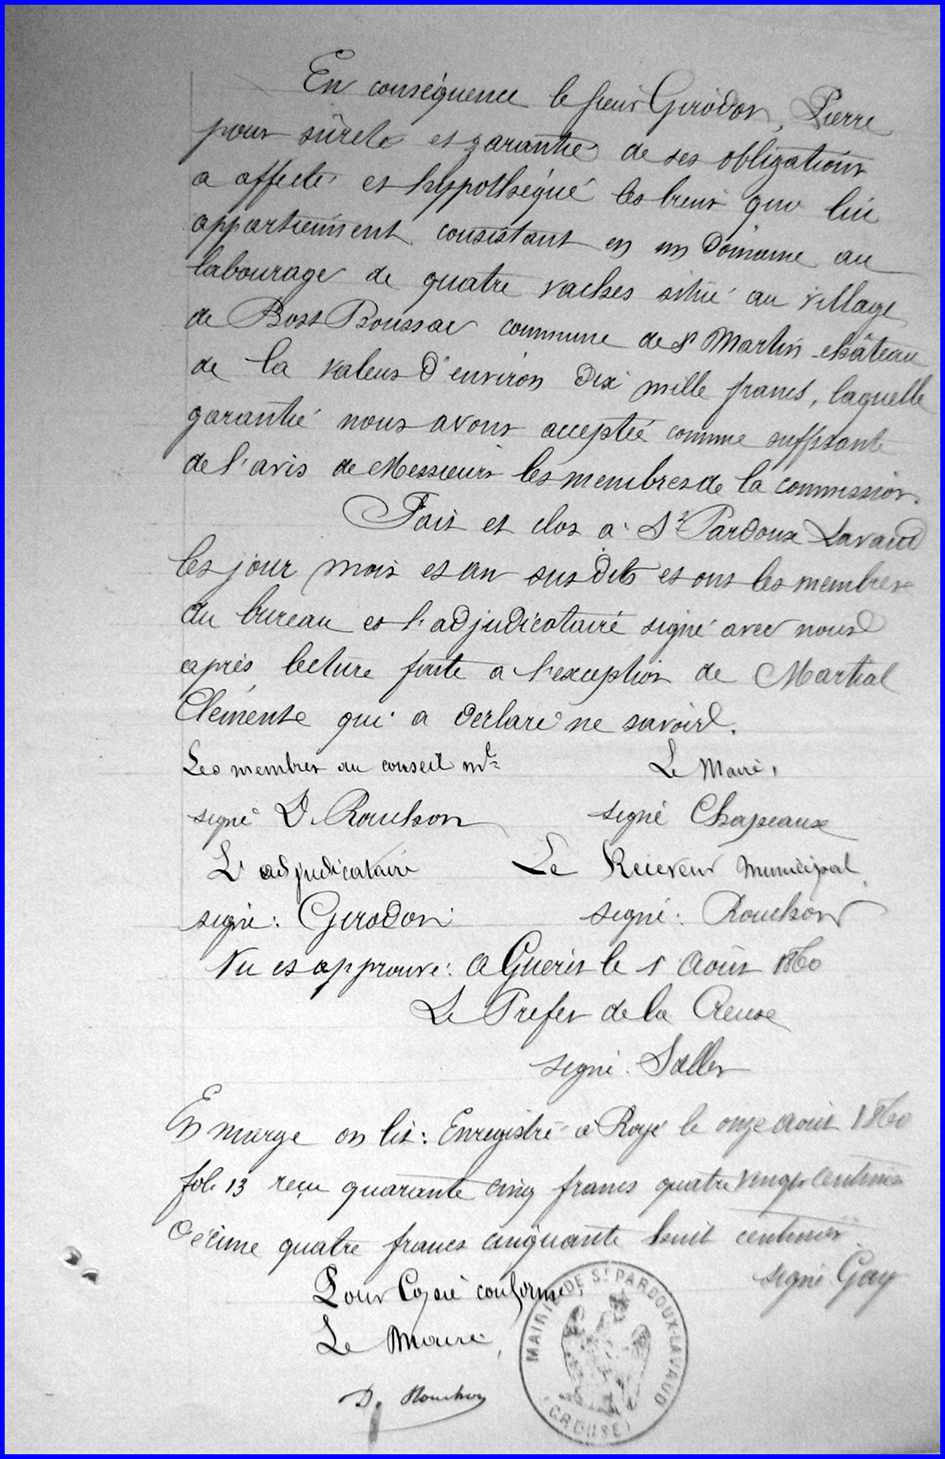 En conséquence le sieur Girodon, Pierre
pour sûreté et garantie de ses obligations
a affecté et hypothéqué les biens qui lui
appartiennent consistant en un Domaine au
labourage de quatre vaches situé au village
de Bost Boussac commune de St Martin château
de la valeur d'environ dix mille francs, laquelle
garantie nous avons acceptée comme suffisant
de l'avis de Messieurs les membres de la commission.
Fait et clos à St Pardoux Lavaud
les jour mois et an susdits et ont les membres
du bureau et l'adjudicataire signé avec nous
après lecture faite a l'exception de Martial
Clémente qui a declaré ne savoir.
Les membres du conseil mal
Le Maire,
signé D. Rouchon
signé Chapeaux
L'adjudicataire
Le Receveur Municipal
signé: Girodon
signé: Rouchon
Vu et approuvé: a Guéret le 1 Août 1860
Le Prefet de la Creuse
signé
En marge on lit: Enregistré à le onze août 1860
fol. 13 reçu quarante cinq francs quatre vingt centimes
Décime quatre francs cinquante huit centimes
signé Gay
Pour Copie conforme,
Le Maire,
D. Rouchon
MAIRIE DE ST PARDOUX-LAVAUD
(CREUSE)